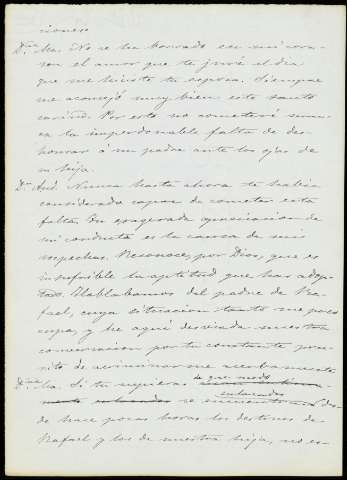 ciones.
Dña Ma. No se ha borrado en mi cora-
zon el amor que te juré el dia
que me hiciste tu esposa. Siempre
me aconsejó muy bien este santo
cariño. Por esto no cometeré nun-
ca la imperdonable falta de des-
honrar á un padre ante los ojos de
su hija.
Dn And. Nunca hasta ahora te habia
considerado capaz de cometer esta
falta. Tu exagerada apreciacion de
mi conducta es la causa de mis
sospechas. Reconoce, por Dios, que es
insufrible la aptitud que has adop-
tado. Hablabamos del padre de Ra-
fael, cuya situacion tanto me preo-
cupa, y he aqui desviada nuestra
conversacion por tu constante pru-
rito de acriminarme acerbamente
Dña Ma. Si tu supieras de que modo
enlazados se encuentran des-
de hace pocas horas los destinos de
Rafael y los de nuestra hija, no es-